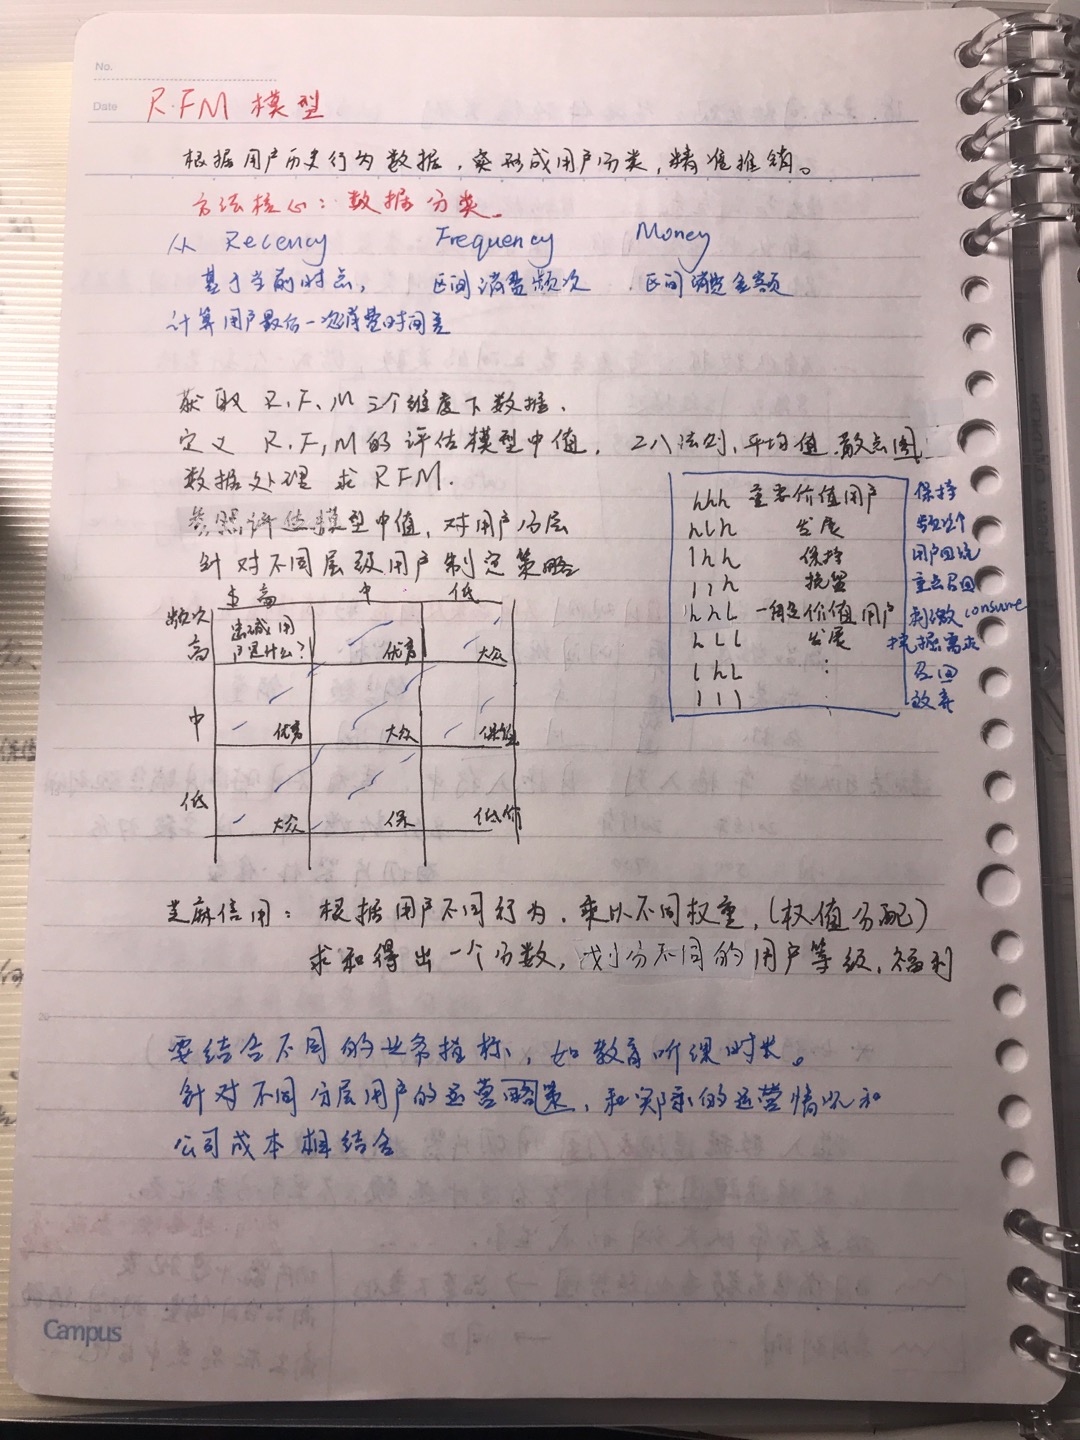 No.
Date
R.FM 模型
根据用户历史行为数据，实形成用户分类，精准推销。
方法核心：数据分类。
从 Recency Frequency Money
基于当前时点， 区间消费频次 区间消费金额
计算用户最后一次消费时间差
获取 R、F、M 三个维度下数据、
定义 R、F，M的评估模型中值， 二八法则、平均值、散点图
数据处理 求 RFM.
参照评估模型中值，对用户分层
针对不同层级用户制定策略
hhh 重要价值用户 保持
hlh 发展
lhh 保持 用户回流
llh 挽留 重点召回
hhl 一般价值用户 刺激consume
hll 发展 挖掘需求
lhl : 召回
lll 放弃
高 中 低
频次
高 忠诚用户是什么？ 优秀 大众
中 优秀 大众
低 大众 保 低价
芝麻信用：根据用户不同行为、乘以不同权重，(权值分配)
求和得出一个分数，划分不同的用户等级、福利
要结合不同的业务指标、如教育听课时长。
针对不同分层用户的运营策略，和实际的运营情况和
公司成本相结合
Campus